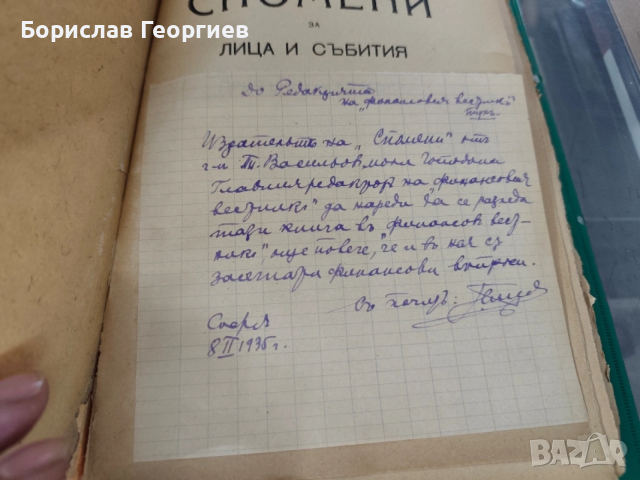 Борислав Георгиев
СПОМЕНИ
ЗА
ЛИЦА И СЪБИТИЯ
До Редакцията
на „Финансовия вестникъ"
Издательтъ на „Спомени" отъ
г-н Т. Васильов моли Господина
Главния редакторъ на „Финансовия
вестникъ" да нареди да се разгледа
тази книга въ „Финансов вест-
никъ", още повече, че и въ нея сѫ
засегнати финансови въпроси.
Съ почитъ:
София
8 II 1935 г.
BAZAR